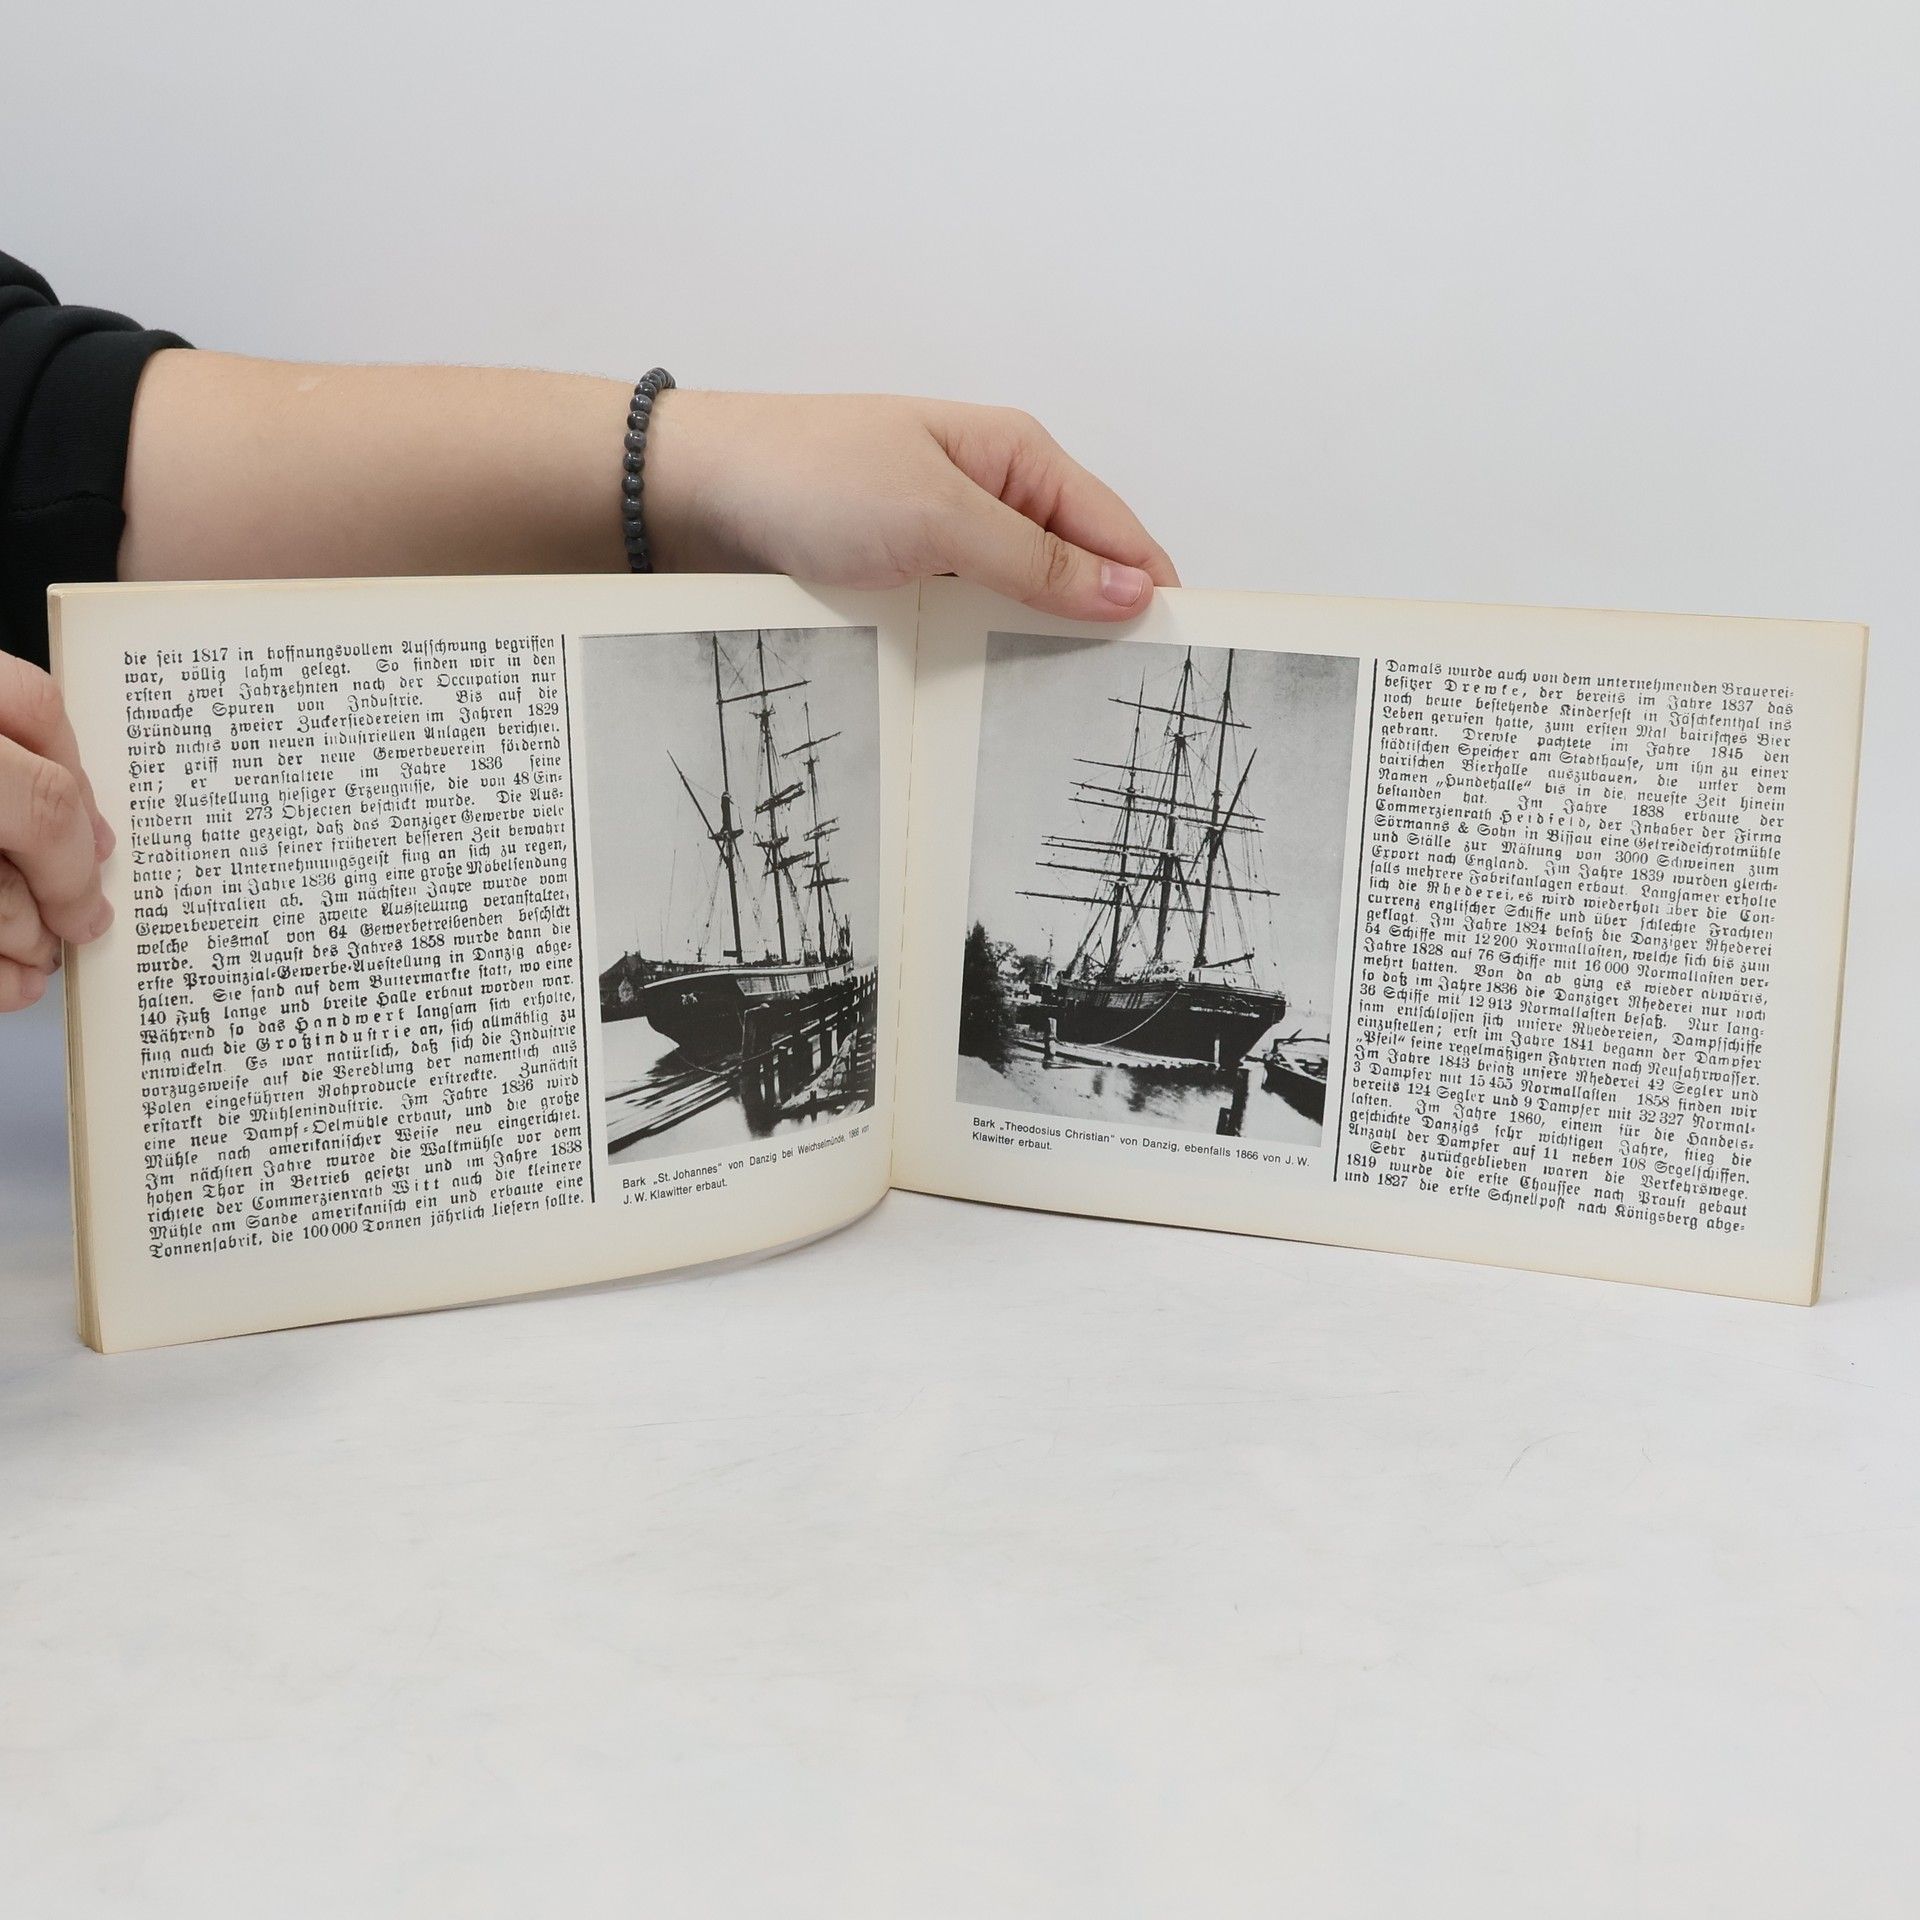 die seit 1817 in hoffnungsvollem Aufschwung begriffen
war, völlig lahm gelegt. So finden wir in den
ersten zwei Jahrzehnten nach der Occupation nur
schwache Spuren von Industrie. Bis auf die
Gründung zweier Zuckersiedereien im Jahren 1829
wird nichts von neuen industriellen Anlagen berichtet.
Hier griff nun der neue Gewerbeverein fördernd
ein; er veranstaltete im Jahre 1836 seine
erste Ausstellung hiesiger Erzeugnisse, die von 48 Ein-
sendern mit 273 Objecten beschickt wurde. Die Aus-
stellung hatte gezeigt, daß das Danziger Gewerbe viele
Traditionen aus seiner früheren besseren Zeit bewahrt
hatte; der Unternehmungsgeist fing an sich zu regen,
und schon im Jahre 1836 ging eine große Möbelsendung
nach Australien ab. Im nächsten Jahre wurde vom
Gewerbeverein eine zweite Ausstellung veranstaltet,
welche diesmal von 64 Gewerbetreibenden beschickt
wurde. Im August des Jahres 1858 wurde dann die
erste Provinzial-Gewerbe-Ausstellung in Danzig abge-
halten. Sie fand auf dem Buttermarkte statt, wo eine
140 Fuß lange und breite Halle erbaut worden war.
Während so das Handwerk langsam sich erholte,
fing auch die Großindustrie an, sich allmählig zu
entwickeln. Es war natürlich, daß sich die Industrie
vorzugsweise auf die Veredlung der namentlich aus
Polen eingeführten Rohproducte erstreckte. Zunächst
erstarkt die Mühlenindustrie. Im Jahre 1836 wird
eine neue Dampf-Oelmühle erbaut, und die große
Mühle nach amerikanischer Weise neu eingerichtet.
Im nächsten Jahre wurde die Walkmühle vor dem
hohen Thor in Betrieb gesetzt und im Jahre 1838
richtete der Commerzienrath Witt auch die kleinere
Mühle am Sande amerikanisch ein und erbaute eine
Tonnenfabrik, die 100000 Tonnen jährlich liefern sollte.
Bark „St. Johannes" von Danzig bei Weichselmünde, 1866 von
J. W. Klawitter erbaut.
Bark „Theodosius Christian" von Danzig, ebenfalls 1866 von J. W.
Klawitter erbaut.
Damals wurde auch von dem unternehmenden Brauerei-
besitzer Drewke, der bereits im Jahre 1837 das
noch heute bestehende Kinderfest in Jäschkenthal ins
Leben gerufen hatte, zum ersten Mal bairisches Bier
gebrant. Drewke pachtete im Jahre 1845 den
städtischen Speicher am Stadthause, um ihn zu einer
bairischen Bierhalle auszubauen, die unter dem
Namen „Hundehalle" bis in die neueste Zeit hinein
bestanden hat. Im Jahre 1838 erbaute der
Commerzienrath Heidfeld, der Inhaber der Firma
Sörmanns & Sohn in Bissau eine Getreideschrotmühle
und Ställe zur Mästung von 3000 Schweinen zum
Export nach England. Im Jahre 1839 wurden gleich-
falls mehrere Fabrikanlagen erbaut. Langsamer erholte
sich die Rhederei, es wird wiederholt über die Con-
currenz englischer Schiffe und über schlechte Frachten
geklagt. Im Jahre 1824 besaß die Danziger Rhederei
54 Schiffe mit 12200 Normallasten, welche sich bis zum
Jahre 1828 auf 76 Schiffe mit 16000 Normallasten ver-
mehrt hatten. Von da ab ging es wieder abwärts,
so daß im Jahre 1836 die Danziger Rhederei nur noch
36 Schiffe mit 12913 Normallasten besaß. Nur lang-
sam entschlossen sich unsere Rhedereien, Dampfschiffe
einzustellen; erst im Jahre 1841 begann der Dampfer
„Pfeil" seine regelmäßigen Fahrten nach Neufahrwasser.
Im Jahre 1843 besaß unsere Rhederei 42 Segler und
3 Dampfer mit 15455 Normallasten 1858 finden wir
bereits 124 Segler und 9 Dampfer mit 32327 Normal-
lasten. Im Jahre 1860, einem für die Handels-
geschichte Danzigs sehr wichtigen Jahre, stieg die
Anzahl der Dampfer auf 11 neben 108 Segelschiffen.
Sehr zurückgeblieben waren die Verkehrswege.
1819 wurde die erste Chaussee nach Praust gebaut
und 1827 die erste Schnellpost nach Königsberg abge-